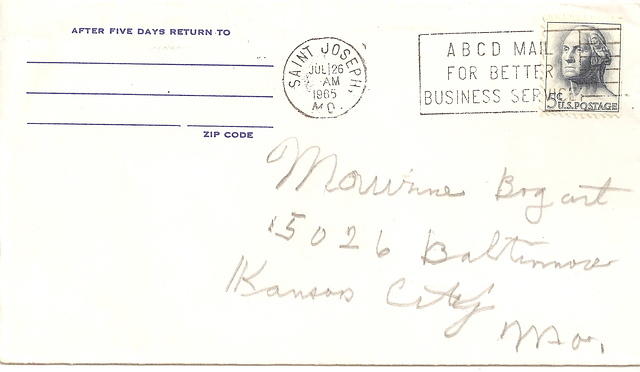 AFTER FIVE DAYS RETURN TO
ZIP CODE
SAINT JOSEPH,
JUL 26
AM
1965
MO.
ABCD MAIL
FOR BETTER
BUSINESS SERVICE
5¢ U.S. POSTAGE
Mowrine Bogart
5026 Baltimore
Kansas City
Mo.